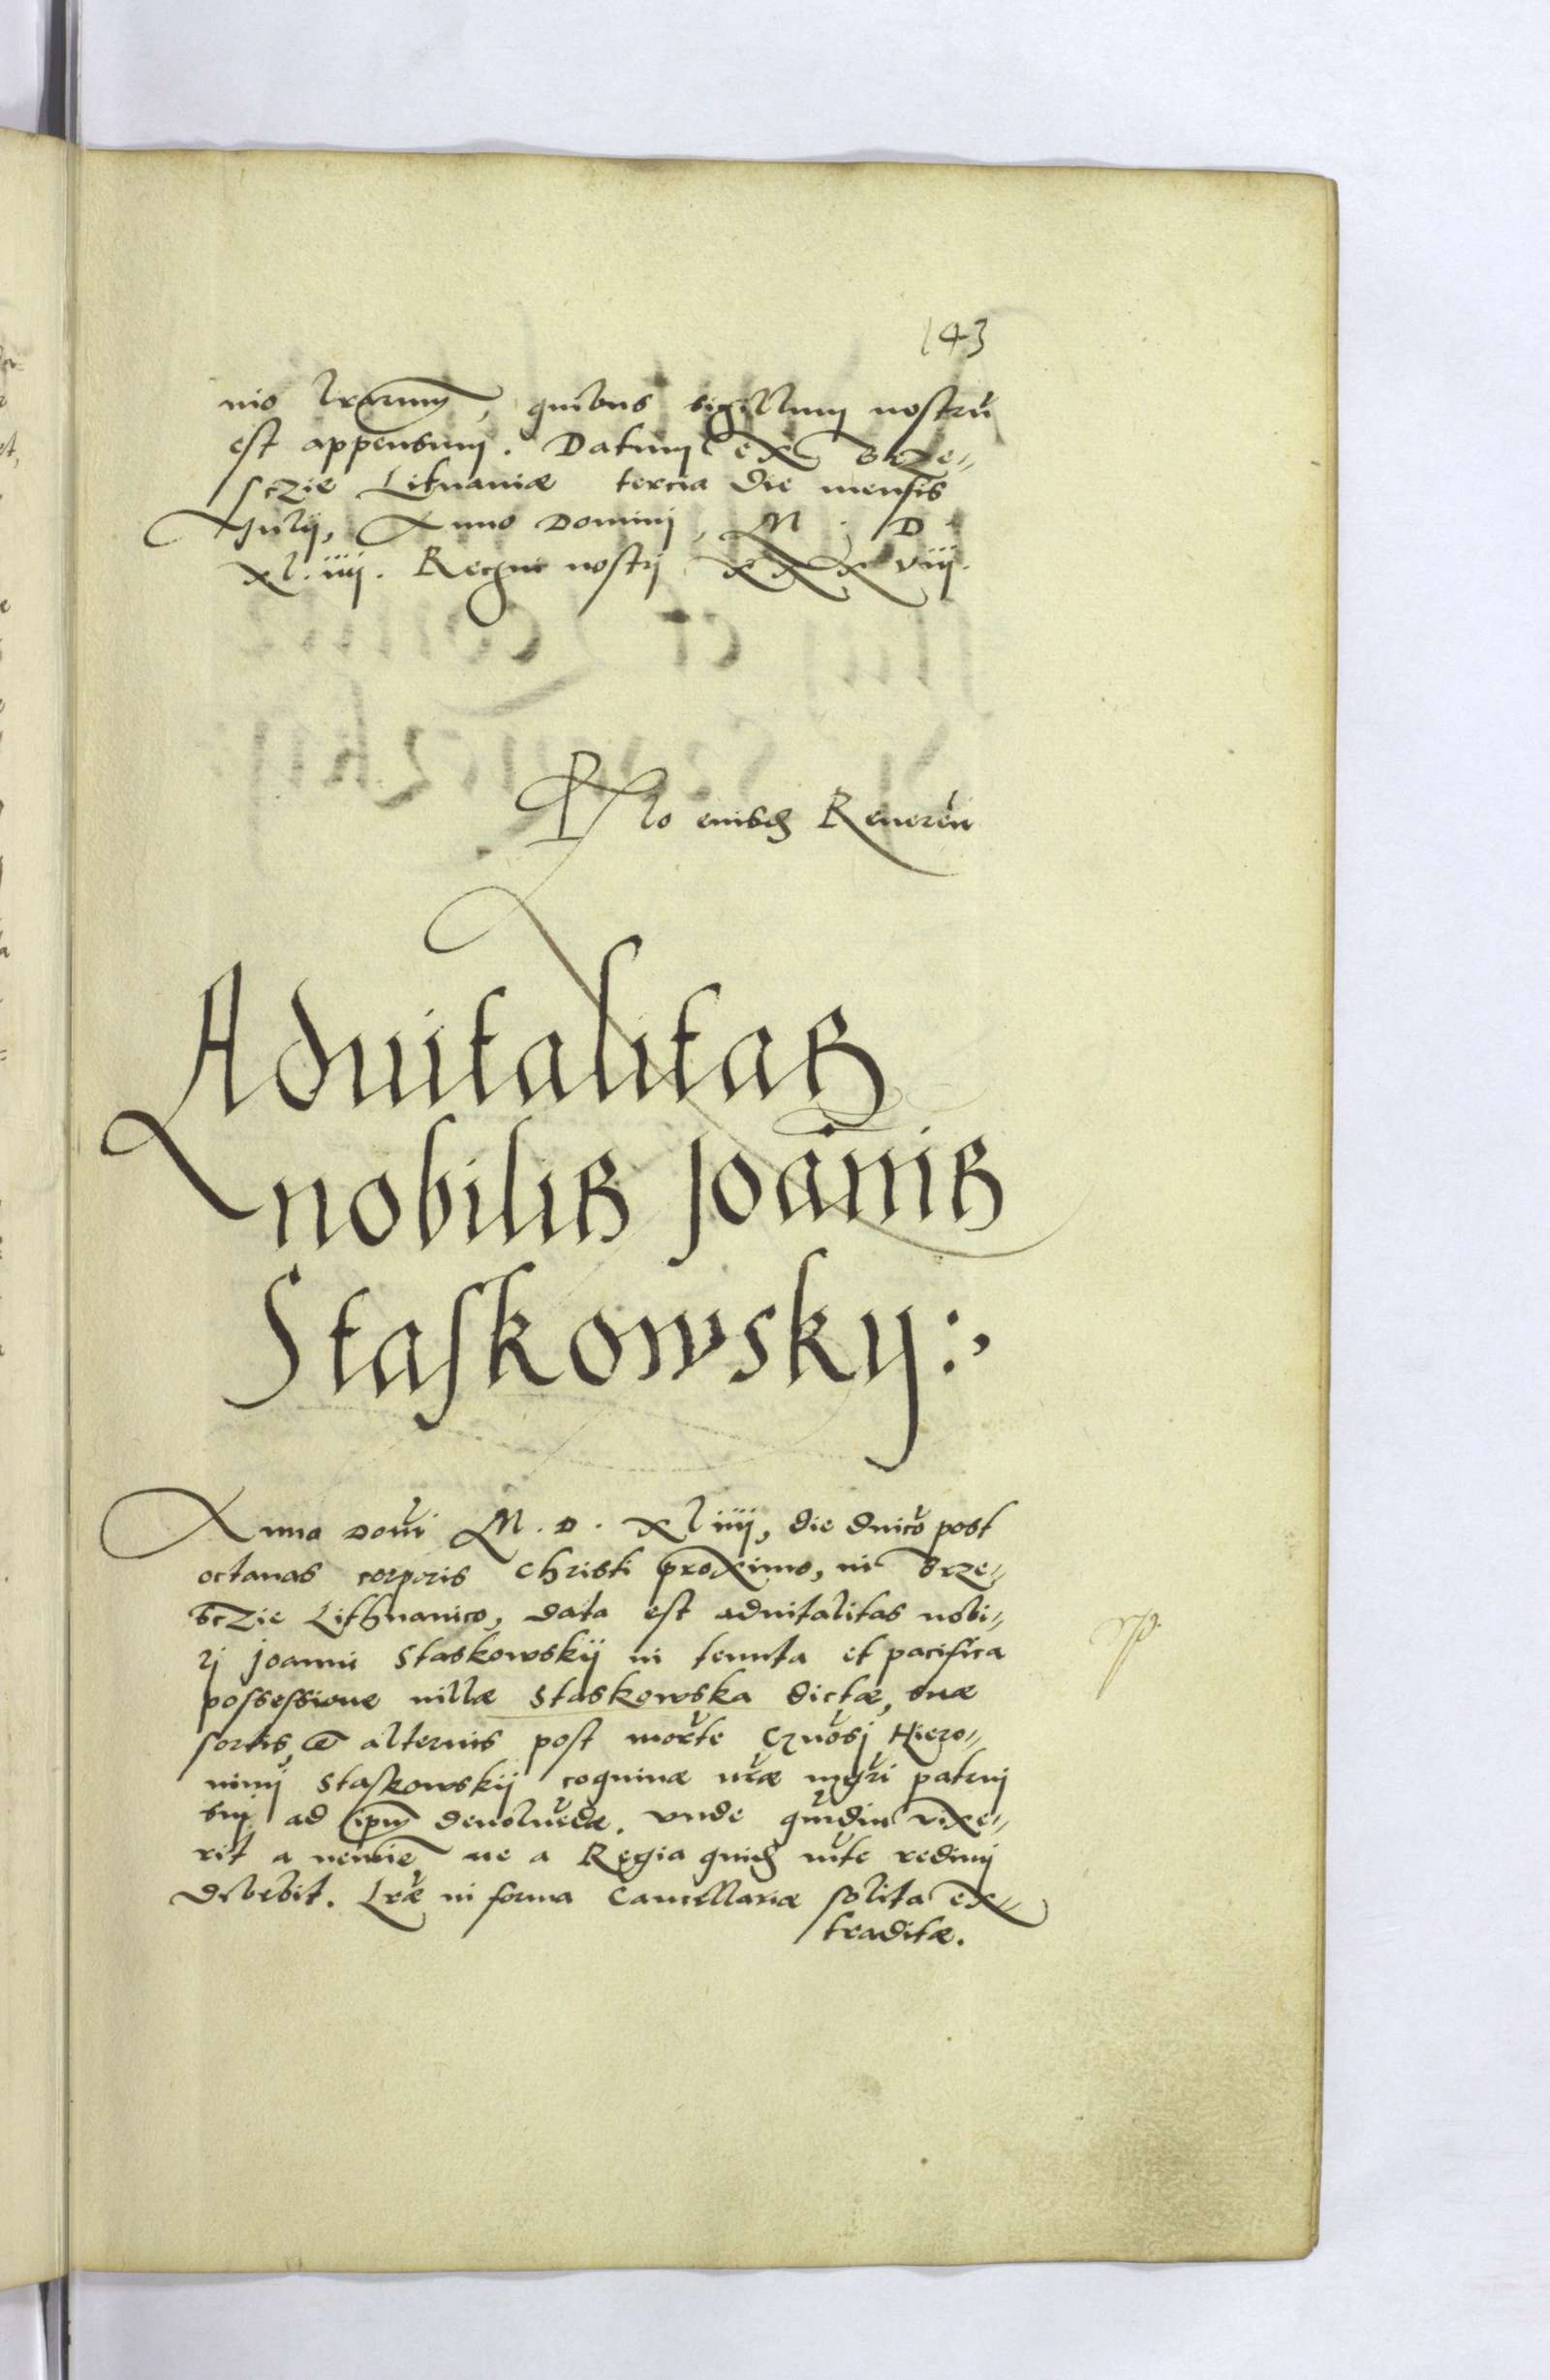 143
nio lrarum, quibus sigillum nostrū
est appensum. Datum ex Brze=
sczie Lituaniæ tercia die mensis
Julij, Anno Domini, M. D.
xl. iiij. Regni nostrj xxxviij.
Rlo eiusdē Reueren̄
Aduitalitas
nobilis Joānis
Staskowsky:,
Anno Domī M. D. xliiij, die dnico post
octauas corporis Christi proximo, in Brze=
sczie Lithuanico, data est aduitalitas nobi=
lj Joanni Staskowskij in tenuta et pacifica
possessione villæ Staskowska dictæ, suæ
sortis, et alterius post mortē Hiero=
nimj Staskowskij patruj
suj ad ipm deuoluēdæ. Vnde quādiu vixe=
rit a nemine, ne a Regia quidē mte redimj
debebit. Lræ in forma Cancellariæ solita ex=
traditæ.